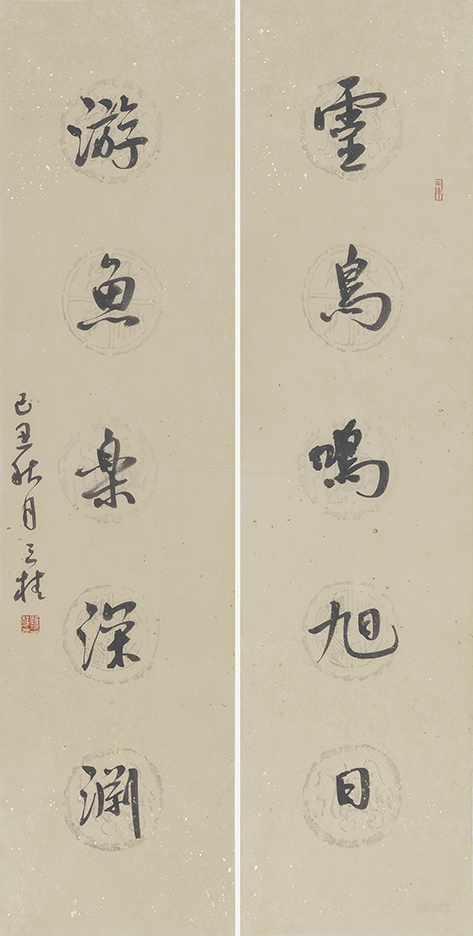 靈鳥鳴旭日
游魚樂深淵
己丑秋月三桂